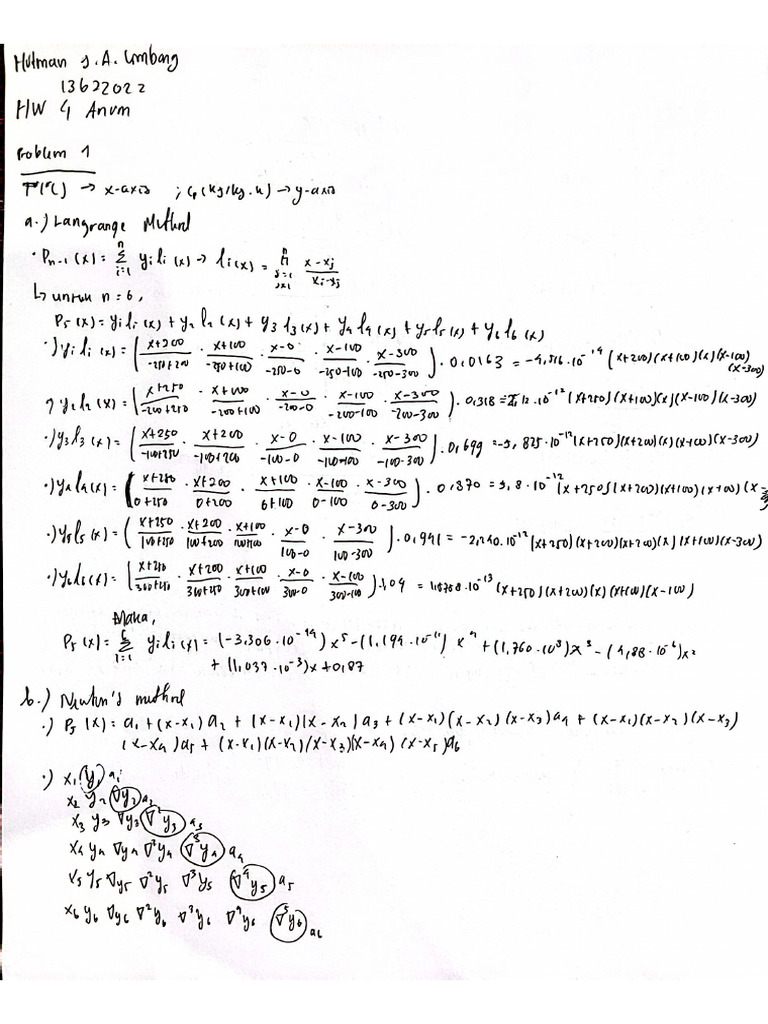 Hutman J. A. Limbong
13622022
HW 4 Anum
Problem 1
T(°C) → x-axis ; Cp (kJ/kg.K) → y-axis
a.) Langrange Method
• Pₙ₋₁(x) = Σⁿᵢ₌₁ yᵢlᵢ(x) → lᵢ(x) = Πⁿ (x-xⱼ)/(xᵢ-xⱼ)
↳ untuk n = 6,
P₅(x) = y₁l₁(x) + y₂l₂(x) + y₃l₃(x) + y₄l₄(x) + y₅l₅(x) + y₆l₆(x)
•) y₁l₁(x) = ((x+200)/(-250+200) · (x+100)/(-250+100) · (x-0)/(-250-0) · (x-100)/(-250-100) · (x-300)/(-250-300)) · 0,0163 = (x+200)(x+100)(x)(x-100)(x-300)
•) y₂l₂(x) = ((x+250)/(-200+250) · (x+100)/(-200+100) · (x-0)/(-200-0) · (x-100)/(-200-100) · (x-300)/(-200-300)) · 0,318 = 12·10⁻¹² (x+250)(x+100)(x)(x-100)(x-300)
•) y₃l₃(x) = ((x+250)/(-100+250) · (x+200)/(-100+200) · (x-0)/(-100-0) · (x-100)/(-100-100) · (x-300)/(-100-300)) · 0,699 = -5,825·10⁻¹² (x+250)(x+200)(x)(x+100)(x-300)
•) y₄l₄(x) = ((x+250)/(0+250) · (x+200)/(0+200) · (x+100)/(0+100) · (x-100)/(0-100) · (x-300)/(0-300)) · 0,870 = 5,8·10⁻¹² (x+250)(x+200)(x+100)(x+100)
•) y₅l₅(x) = ((x+250)/(100+250) · (x+200)/(100+200) · (x+100)/(100+100) · (x-0)/(100-0) · (x-300)/(100-300)) · 0,941 = -2,240·10⁻¹² (x+250)(x+200)(x+200)(x)(x+100)(x-300)
•) y₆l₆(x) = ((x+250)/(300+250) · (x+200)/(300+200) · (x+100)/(300+100) · (x-0)/(300-0) · (x-100)/(300-100)) · 1,04 = (x+250)(x+200)(x)(x+100)(x-100)
Maka,
P₅(x) = Σ⁶ᵢ₌₁ yᵢlᵢ(x) = (-3,306·10⁻¹⁴) x⁵ - (1,194·10⁻¹¹) x⁴ + (1,760·10⁻⁸) x³ - (4,88·10⁻⁶) x²
+ (1,037·10⁻³) x + 0,87
b.) Newton's method
•) P₅(x) = a₁ + (x-x₁) a₂ + (x-x₁)(x-x₂) a₃ + (x-x₁)(x-x₂)(x-x₃) a₄ + (x-x₁)(x-x₂)(x-x₃)
(x-x₄) a₅ + (x-x₁)(x-x₂)(x-x₃)(x-x₄)(x-x₅) a₆
•) x₁ y₁ a₁
x₂ y₂ ∇y₂ a₂
x₃ y₃ ∇y₃ ∇²y₃ a₃
x₄ y₄ ∇y₄ ∇²y₄ ∇³y₄ a₄
x₅ y₅ ∇y₅ ∇²y₅ ∇³y₅ ∇⁴y₅ a₅
x₆ y₆ ∇y₆ ∇²y₆ ∇³y₆ ∇⁴y₆ ∇⁵y₆ a₆